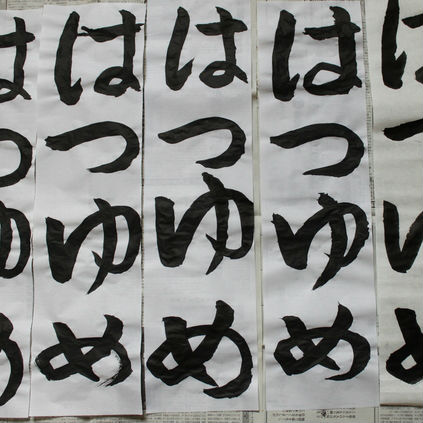 はつゆめ
はつゆめ
はつゆめ
はつゆめ
はつゆめ